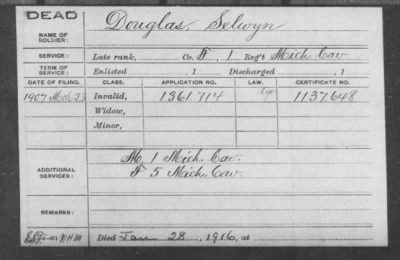 DEAD
NAME OF SOLDIER: Douglas, Selwyn
SERVICE: Late rank, Co. F, 1 Reg't Mich Cav
TERM OF SERVICE: Enlisted , 1 Discharged , 1
DATE OF FILING. CLASS. APPLICATION NO. LAW. CERTIFICATE NO.
1907 Mch 23 Invalid, 1361.714 1137.648
Widow,
Minor,
ADDITIONAL SERVICES: M. 1 Mich Cav.
F 5 Mich. Cav.
REMARKS:
Died Jan 28, 1916, at